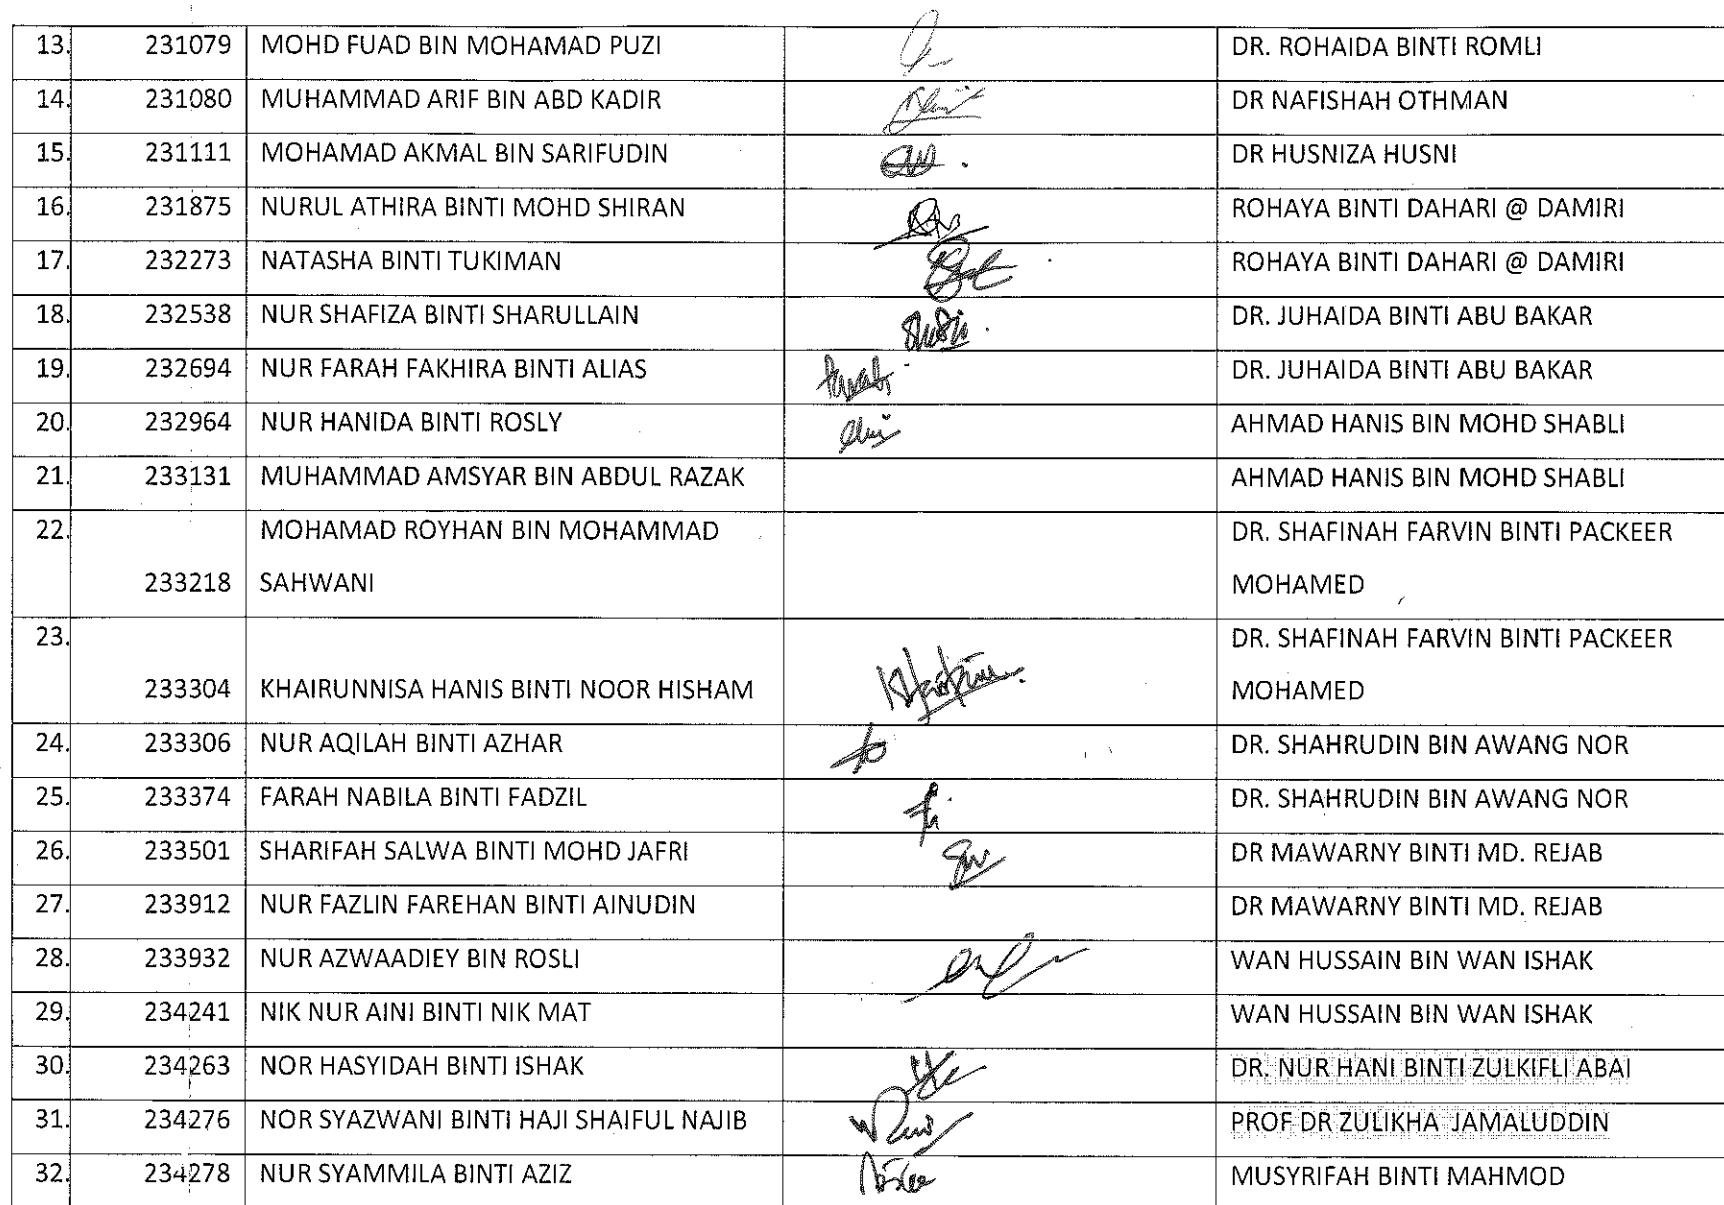 13. 231079 MOHD FUAD BIN MOHAMAD PUZI DR. ROHAIDA BINTI ROMLI
14. 231080 MUHAMMAD ARIF BIN ABD KADIR DR NAFISHAH OTHMAN
15. 231111 MOHAMAD AKMAL BIN SARIFUDIN DR HUSNIZA HUSNI
16. 231875 NURUL ATHIRA BINTI MOHD SHIRAN ROHAYA BINTI DAHARI @ DAMIRI
17. 232273 NATASHA BINTI TUKIMAN ROHAYA BINTI DAHARI @ DAMIRI
18. 232538 NUR SHAFIZA BINTI SHARULLAIN DR. JUHAIDA BINTI ABU BAKAR
19. 232694 NUR FARAH FAKHIRA BINTI ALIAS DR. JUHAIDA BINTI ABU BAKAR
20. 232964 NUR HANIDA BINTI ROSLY AHMAD HANIS BIN MOHD SHABLI
21. 233131 MUHAMMAD AMSYAR BIN ABDUL RAZAK AHMAD HANIS BIN MOHD SHABLI
22. MOHAMAD ROYHAN BIN MOHAMMAD DR. SHAFINAH FARVIN BINTI PACKEER
233218 SAHWANI MOHAMED
23. DR. SHAFINAH FARVIN BINTI PACKEER
233304 KHAIRUNNISA HANIS BINTI NOOR HISHAM MOHAMED
24. 233306 NUR AQILAH BINTI AZHAR DR. SHAHRUDIN BIN AWANG NOR
25. 233374 FARAH NABILA BINTI FADZIL DR. SHAHRUDIN BIN AWANG NOR
26. 233501 SHARIFAH SALWA BINTI MOHD JAFRI DR MAWARNY BINTI MD. REJAB
27. 233912 NUR FAZLIN FAREHAN BINTI AINUDIN DR MAWARNY BINTI MD. REJAB
28. 233932 NUR AZWAADIEY BIN ROSLI WAN HUSSAIN BIN WAN ISHAK
29. 234241 NIK NUR AINI BINTI NIK MAT WAN HUSSAIN BIN WAN ISHAK
30. 234263 NOR HASYIDAH BINTI ISHAK DR. NUR HANI BINTI ZULKIFLI ABAI
31. 234276 NOR SYAZWANI BINTI HAJI SHAIFUL NAJIB PROF DR ZULIKHA JAMALUDDIN
32. 234278 NUR SYAMMILA BINTI AZIZ MUSYRIFAH BINTI MAHMOD